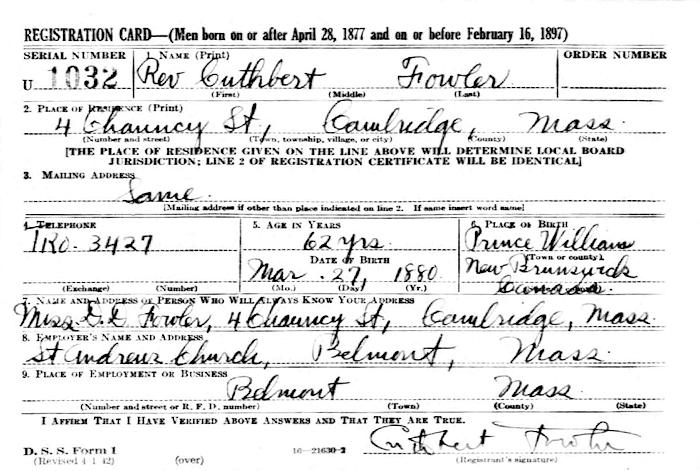 REGISTRATION CARD—(Men born on or after April 28, 1877 and on or before February 16, 1897)
SERIAL NUMBER 1. NAME (Print) ORDER NUMBER
U 1032 Rev Cuthbert Fowler
(First) (Middle) (Last)
2. PLACE OF RESIDENCE (Print)
4 Chauncy St, Cambridge, Mass.
(Number and street) (Town, township, village, or city) (County) (State)
[THE PLACE OF RESIDENCE GIVEN ON THE LINE ABOVE WILL DETERMINE LOCAL BOARD
JURISDICTION; LINE 2 OF REGISTRATION CERTIFICATE WILL BE IDENTICAL]
3. MAILING ADDRESS
Same.
[Mailing address if other than place indicated on line 2. If same insert word same]
4. TELEPHONE 5. AGE IN YEARS 6. PLACE OF BIRTH
TRO. 3427 62 yrs. Prince William
DATE OF BIRTH (Town or county)
Mar. 27, 1880 New Brunswick
Canada.
(Exchange) (Number) (Mo.) (Day) (Yr.) (State or country)
7. NAME AND ADDRESS OF PERSON WHO WILL ALWAYS KNOW YOUR ADDRESS
Miss Fowler, 4 Chauncy St, Cambridge, Mass.
8. EMPLOYER'S NAME AND ADDRESS
St Andrews Church, Belmont, Mass.
9. PLACE OF EMPLOYMENT OR BUSINESS
Belmont Mass.
(Number and street or R. F. D. number) (Town) (County) (State)
I AFFIRM THAT I HAVE VERIFIED ABOVE ANSWERS AND THAT THEY ARE TRUE.
D. S. S. Form 1 16—21630-2 Cuthbert Fowler
(Revised 4-1-42) (over) (Registrant's signature)